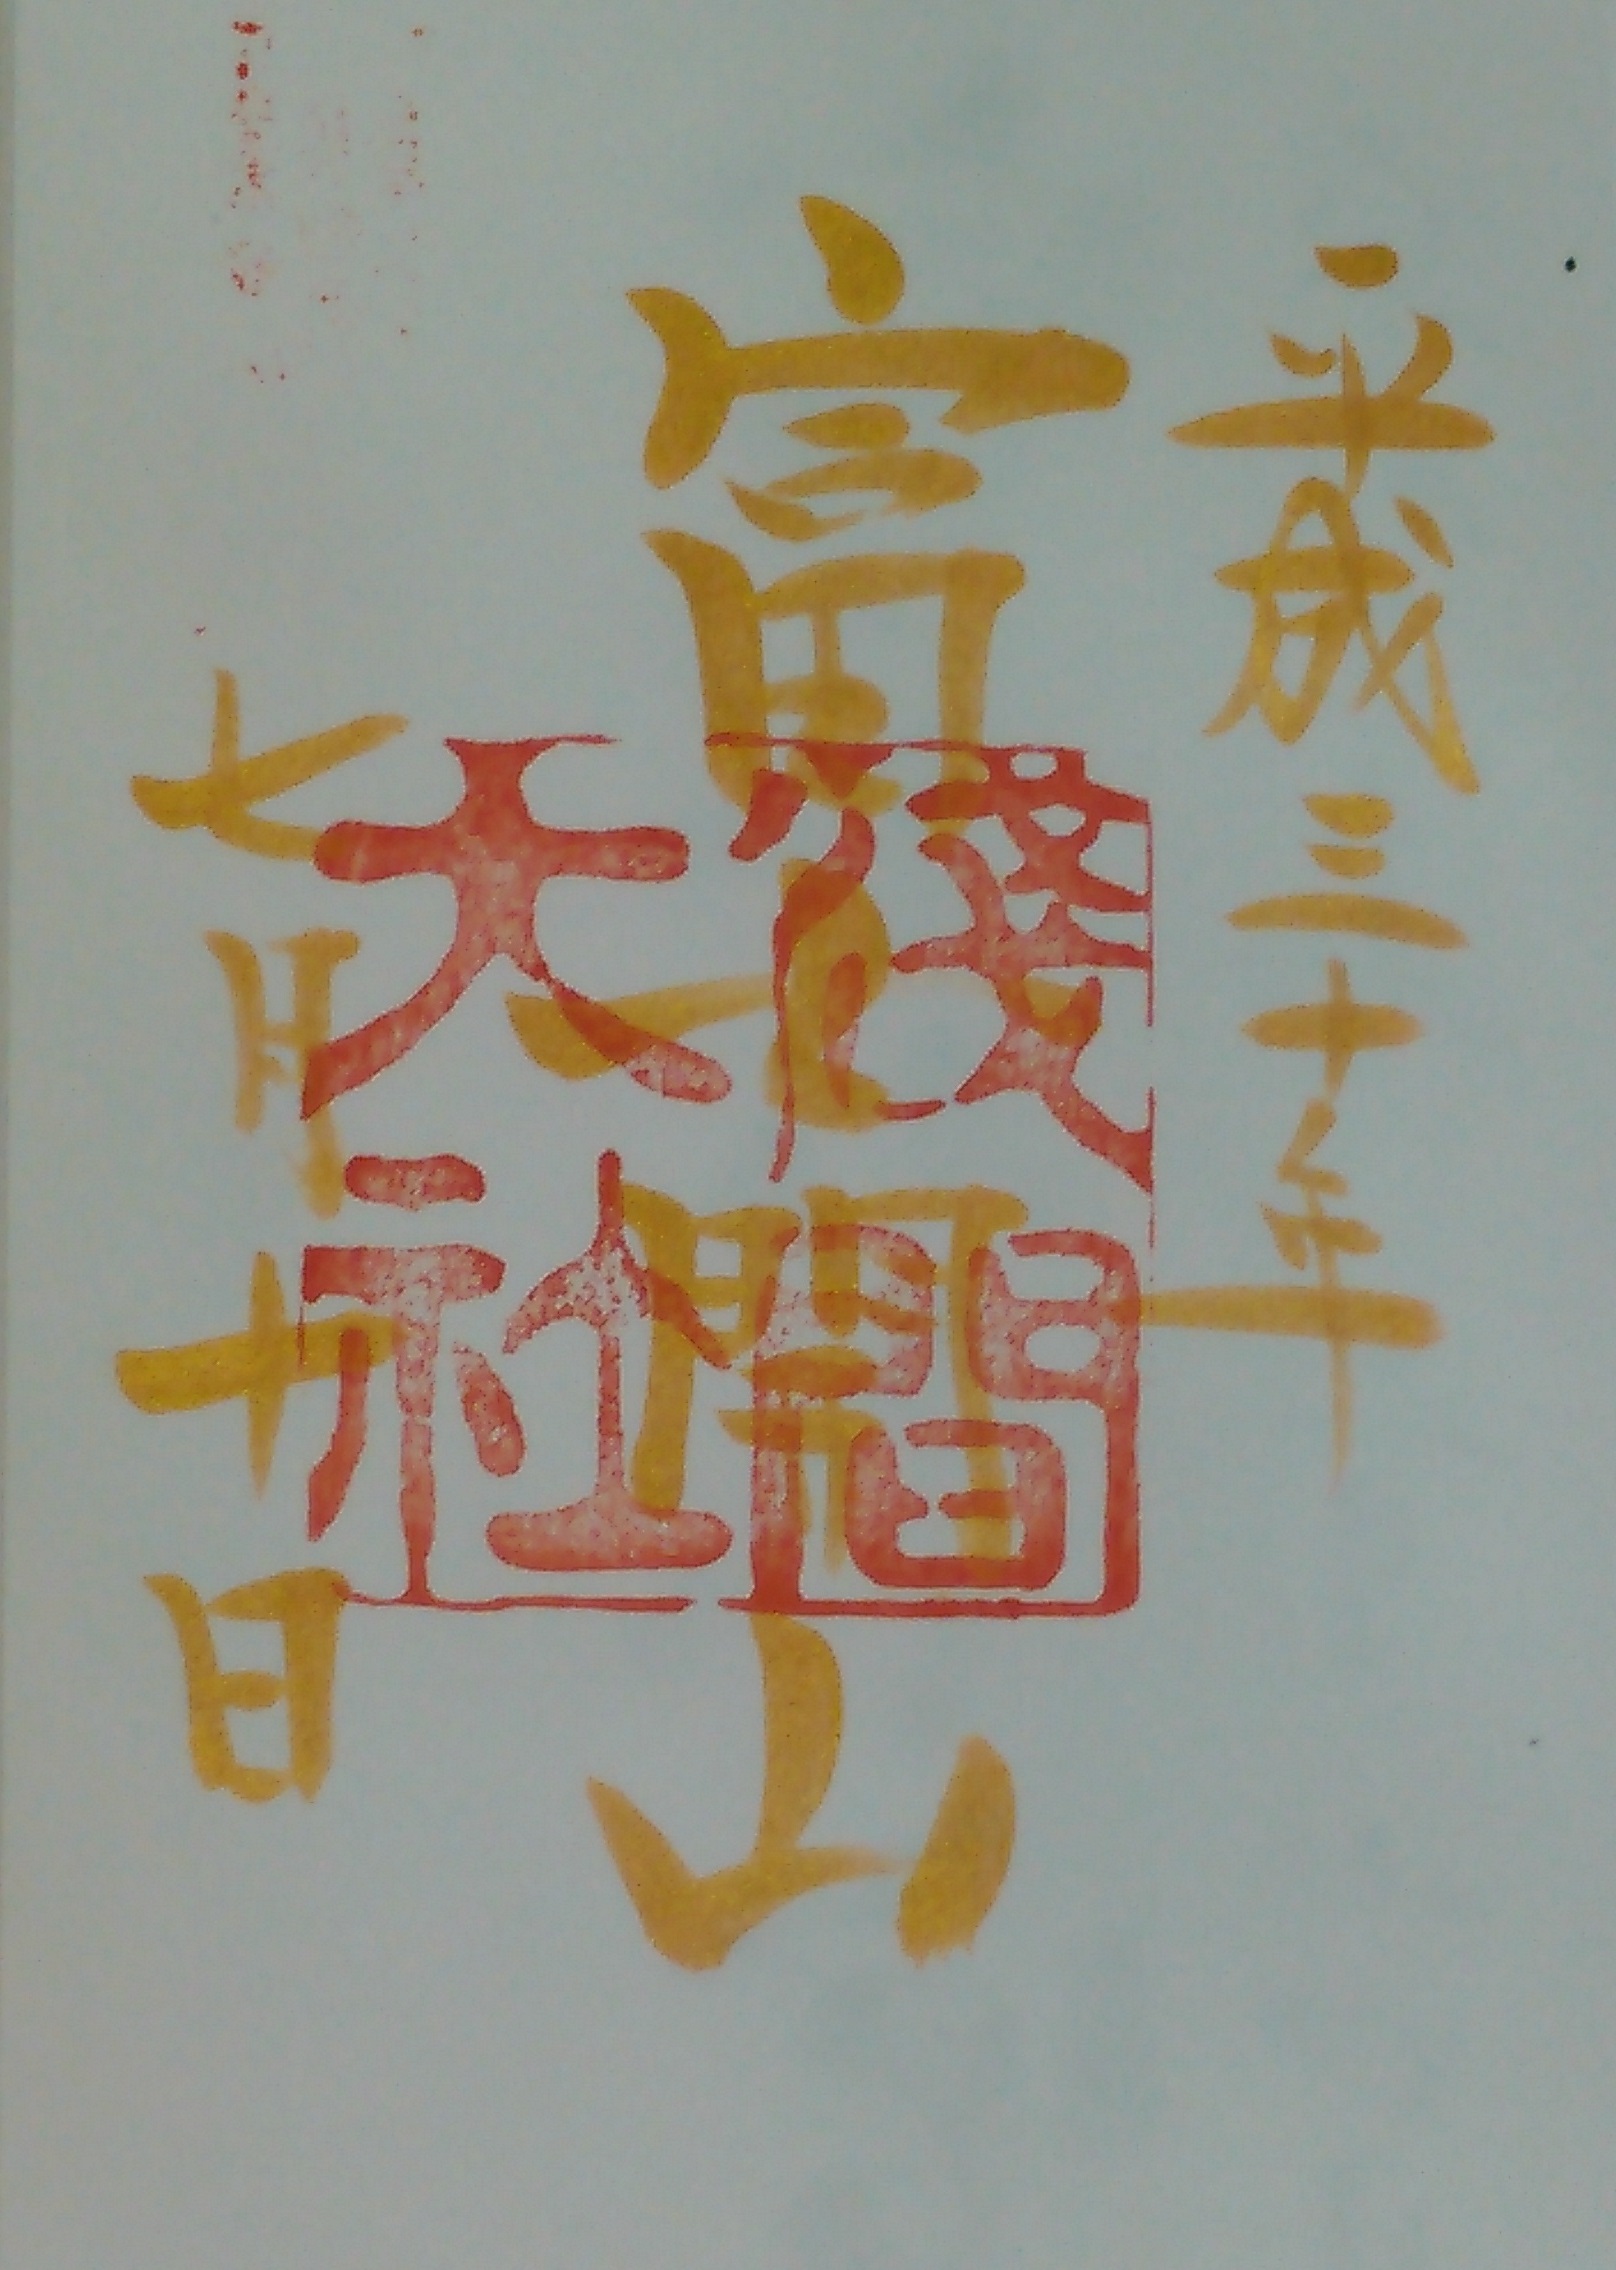 平成三十年
富士開山
七月十日
淺間
大社